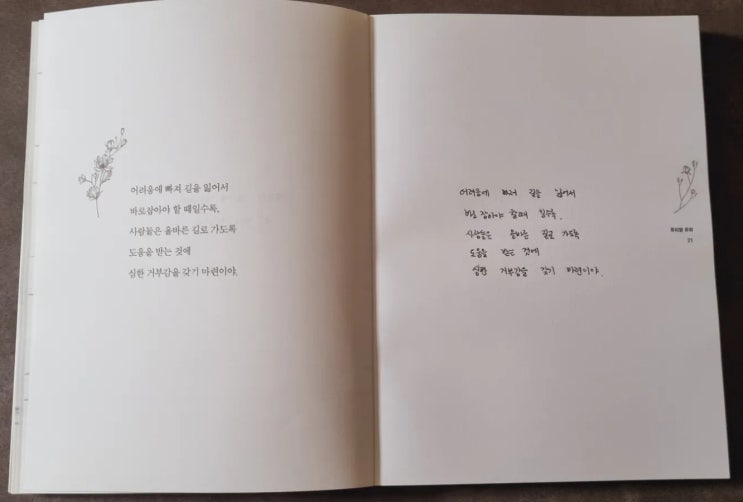 어려움에 빠져 길을 잃어서
바로잡아야 할 때일수록,
사람들은 올바른 길로 가도록
도움을 받는 것에
심한 거부감을 갖기 마련이야.
어려움에 빠져 길을 잃어서
바로 잡아야 할때 일수록,
사람들은 올바른 길로 가도록
도움을 받는 것에
심한 거부감을 갖기 마련이야.
21